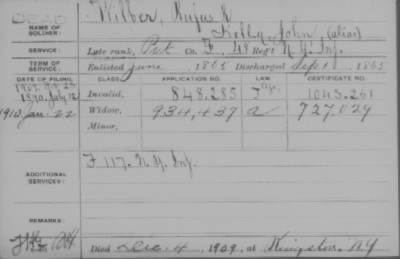 DEAD
NAME OF SOLDIER: Wilber, Rufus
Kelly, John (alias)
SERVICE: Late rank, Pvt Co. F, 48 Reg't N.Y. Inf.
TERM OF SERVICE: Enlisted June, 1865 Discharged Sept, 1865
DATE OF FILING. CLASS. APPLICATION NO. LAW. CERTIFICATE NO.
1890 July 12 Invalid, 848.285 1043.261
1910 Jan. 22 Widow, 934,437 a 727.029
Minor,
ADDITIONAL SERVICES: F 117. N.Y. Inf.
REMARKS:
Died Dec. 4, 1909, at Kingston, NY